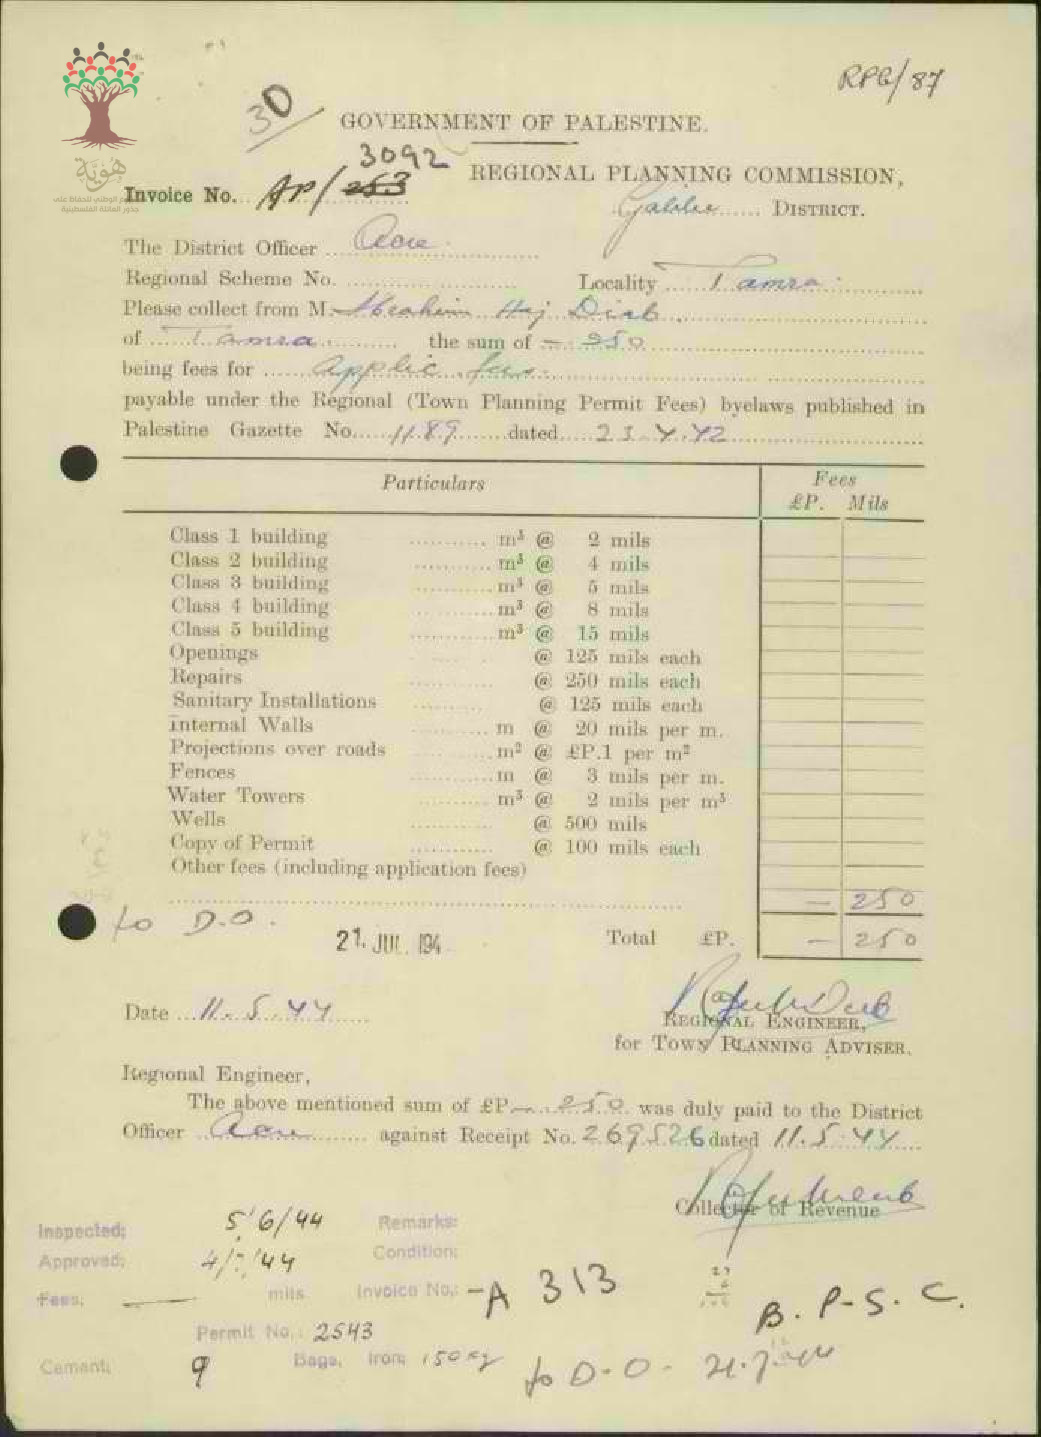 RPG/87
30
GOVERNMENT OF PALESTINE.
هُوِيَّة
الوطني للحفاظ على
جذور العائلة الفلسطينية
Invoice No. AP/253 3092
REGIONAL PLANNING COMMISSION,
Galilee DISTRICT.
The District Officer Acre
Regional Scheme No. Locality Tamra
Please collect from M. Ibrahim Haj Diab
of Tamra the sum of — 250
being fees for Applic. fees
payable under the Regional (Town Planning Permit Fees) byelaws published in
Palestine Gazette No. 1189 dated 23.4.42
Particulars Fees
£P. Mils
Class 1 building m³ @ 2 mils
Class 2 building m³ @ 4 mils
Class 3 building m³ @ 5 mils
Class 4 building m³ @ 8 mils
Class 5 building m³ @ 15 mils
Openings @ 125 mils each
Repairs @ 250 mils each
Sanitary Installations @ 125 mils each
Internal Walls m @ 20 mils per m.
Projections over roads m² @ £P.1 per m²
Fences m @ 3 mils per m.
Water Towers m³ @ 2 mils per m³
Wells @ 500 mils
Copy of Permit @ 100 mils each
Other fees (including application fees)
— 250
to D.O.
21. JUL. 194
Total £P. — 250
Date 11.5.44
REGIONAL ENGINEER,
for TOWN PLANNING ADVISER.
Regional Engineer,
The above mentioned sum of £P — 250 was duly paid to the District
Officer Acre against Receipt No. 269526 dated 11.5.44
Collector of Revenue
Inspected: 5/6/44 Remarks:
Approved: 4/7/44 Condition:
Fees: — mils Invoice No.: -A 313
B.P-S.C.
Permit No.: 2543
Cement: 9 Bags, Iron: 150 kg
to D.O. 21.7.44